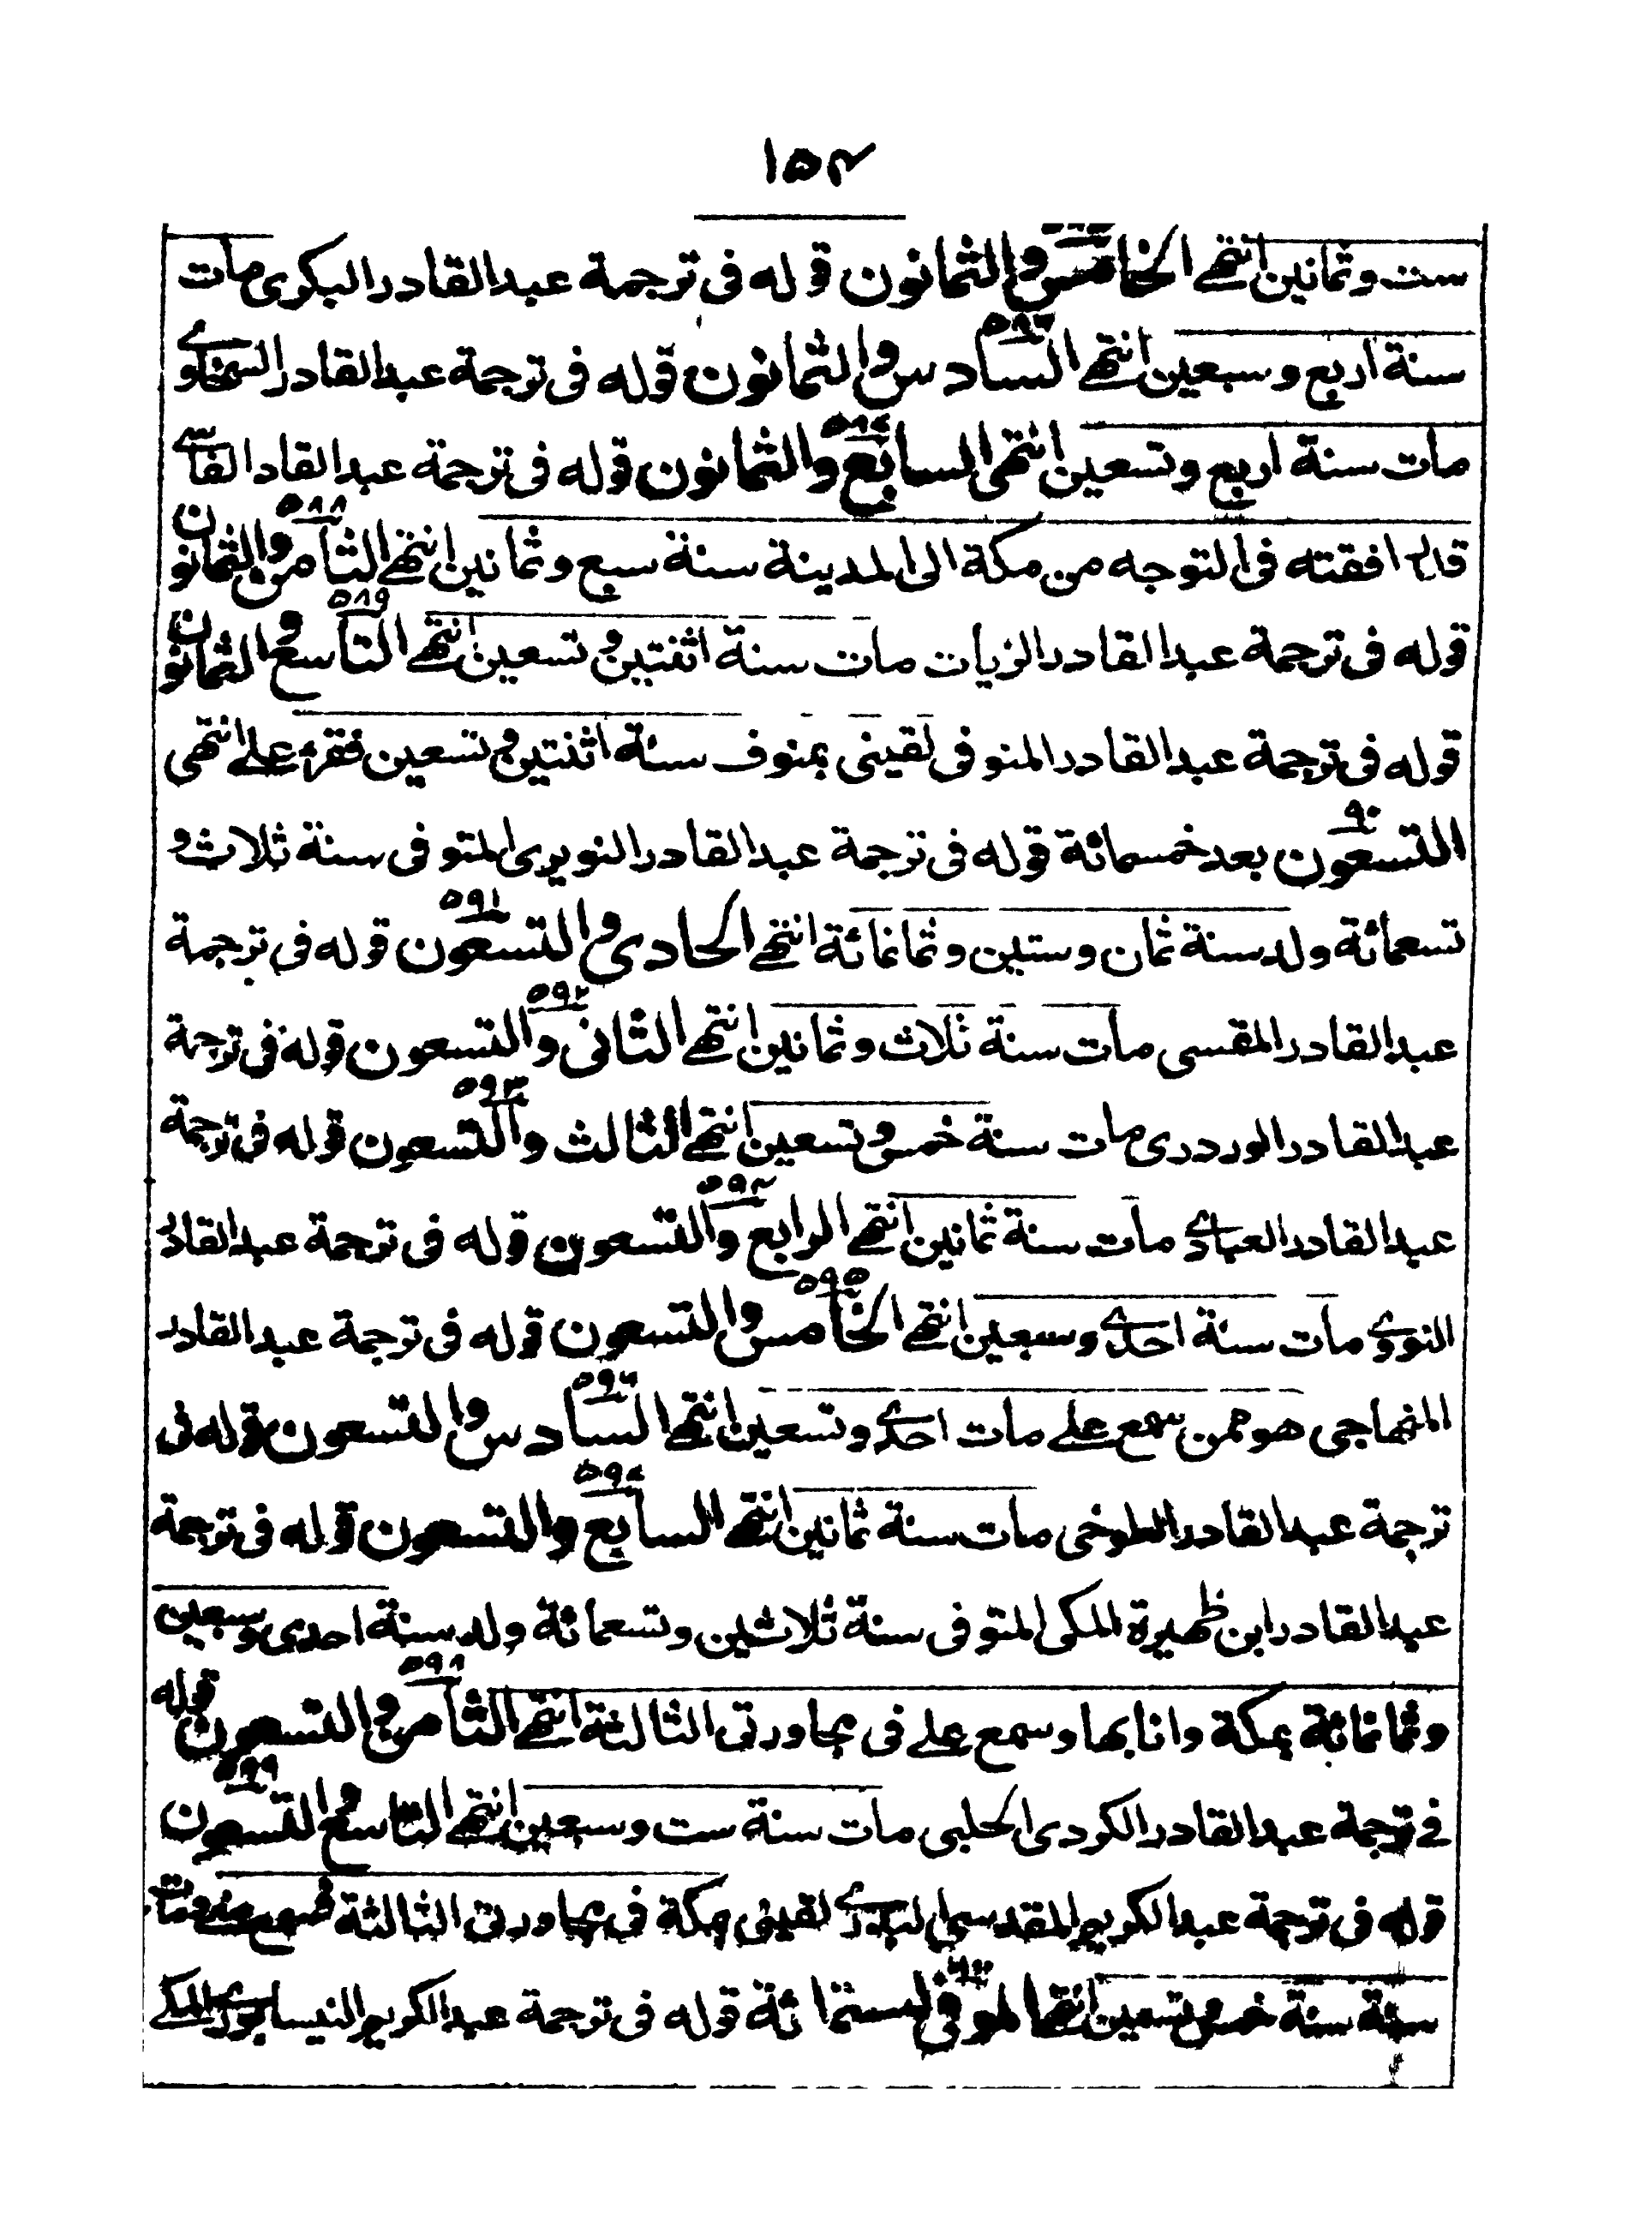 ١٥٤
ست وثمانين انتهى الخامس والثمانون قوله فى ترجمة عبد القادر البكرى مات
٥٨٦
سنة اربع وسبعين انتهے السادس والثمانون قوله فى ترجمة عبد القادر السخاوے
٥٨٧
مات سنة اربع وتسعين انتهى السابع والثمانون قوله فى ترجمة عبد القادر الفاسے
٥٨٨
قال افقته فى التوجه من مكة الى المدينة سنة سبع وثمانين انتهے الثامن والثمانون
٥٨٩
قوله فى ترجمة عبد القادر الزيات مات سنة اثنتين وتسعين انتهے التاسع والثمانون
قوله فى ترجمة عبد القادر المنوفى لقينى بمنوف سنة اثنتين وتسعين فقرء علے انتهى
٩٠
التسعون بعد خمسمائة قوله فى ترجمة عبد القادر النويرى المتوفى سنة ثلاث و
٥٩١
تسعمائة ولد سنة ثمان وستين وثمانمائة انتهے الحادى والتسعون قوله فى ترجمة
٥٩٢
عبد القادر المقسى مات سنة ثلاث وثمانين انتهے الثانى والتسعون قوله فى ترجمة
٥٩٣
عبد القادر الوردرى مات سنة خمس وتسعين انتهے الثالث والتسعون قوله فى ترجمة
٥٩٤
عبد القادر العبادے مات سنة ثمانين انتهے الرابع والتسعون قوله فى ترجمة عبد القادر
٥٩٥
النووے مات سنة احدے وسبعين انتهے الخامس والتسعون قوله فى ترجمة عبد القادر
٥٩٦
المنهاجى هو ممن سمع علے مات احدے وتسعين انتهے السادس والتسعون قوله فى
٥٩٧
ترجمة عبد القادر الطوخى مات سنة ثمانين انتهے السابع والتسعون قوله فى ترجمة
عبد القادر ابن ظهيرة المكى المتوفى سنة ثلاثين وتسعمائة ولد سنة احدى وسبعين
٥٩٨
وثمانمائة بمكة وانا بها وسمع علے فى مجاورتى الثالثة انتهے الثامن والتسعون قوله
٥٩٩
فے ترجمة عبد القادر الكردى الحلبى مات سنة ست وسبعين انتهے التاسع والتسعون
قوله فى ترجمة عبد الكريم المقدسى لقينى بمكة فى مجاورتى الثالثة فسمع منے ومات
٦٠٠
سنة خمس وتسعين انتهى الموفى لستمائة قوله فى ترجمة عبد الكريم النيسابورے المكے